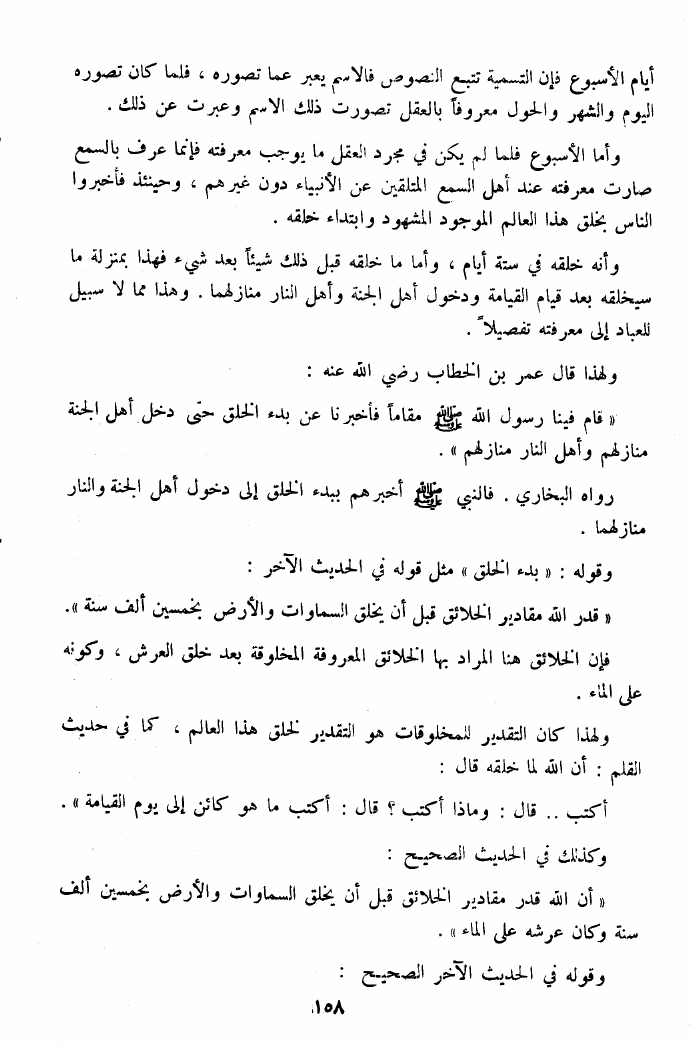 أيام الأسبوع فإن التسمية تتبع النصوص فالاسم يعبر عما تصوره ، فلما كان تصوره
اليوم والشهر والحول معروفاً بالعقل تصورت ذلك الاسم وعبرت عن ذلك .
وأما الأسبوع فلما لم يكن في مجرد العقل ما يوجب معرفته فإنما عرف بالسمع
صارت معرفته عند أهل السمع المتلقين عن الأنبياء دون غيرهم ، وحينئذ فأخبروا
الناس بخلق هذا العالم الموجود المشهود وابتداء خلقه .
وأنه خلقه في ستة أيام ، وأما ما خلقه قبل ذلك شيئاً بعد شيء فهذا بمنزلة ما
سيخلقه بعد قيام القيامة ودخول أهل الجنة وأهل النار منازلهما . وهذا مما لا سبيل
للعباد إلى معرفته تفصيلاً .
ولهذا قال عمر بن الخطاب رضي الله عنه :
« قام فينا رسول الله ﷺ مقاماً فأخبرنا عن بدء الخلق حتى دخل أهل الجنة
منازلهم وأهل النار منازلهم » .
رواه البخاري . فالنبي ﷺ أخبرهم ببدء الخلق إلى دخول أهل الجنة والنار
منازلهما .
وقوله : « بدء الخلق » مثل قوله في الحديث الآخر :
« قدر الله مقادير الخلائق قبل أن يخلق السماوات والأرض بخمسين ألف سنة ».
فإن الخلائق هنا المراد بها الخلائق المعروفة المخلوقة بعد خلق العرش ، وكونه
على الماء .
ولهذا كان التقدير للمخلوقات هو التقدير لخلق هذا العالم ، كما في حديث
القلم : أن الله لما خلقه قال :
أكتب .. قال : وماذا أكتب ؟ قال : أكتب ما هو كائن إلى يوم القيامة » .
وكذلك في الحديث الصحيح :
« أن الله قدر مقادير الخلائق قبل أن يخلق السماوات والأرض بخمسين ألف
سنة وكان عرشه على الماء » .
وقوله في الحديث الآخر الصحيح :
١٥٨